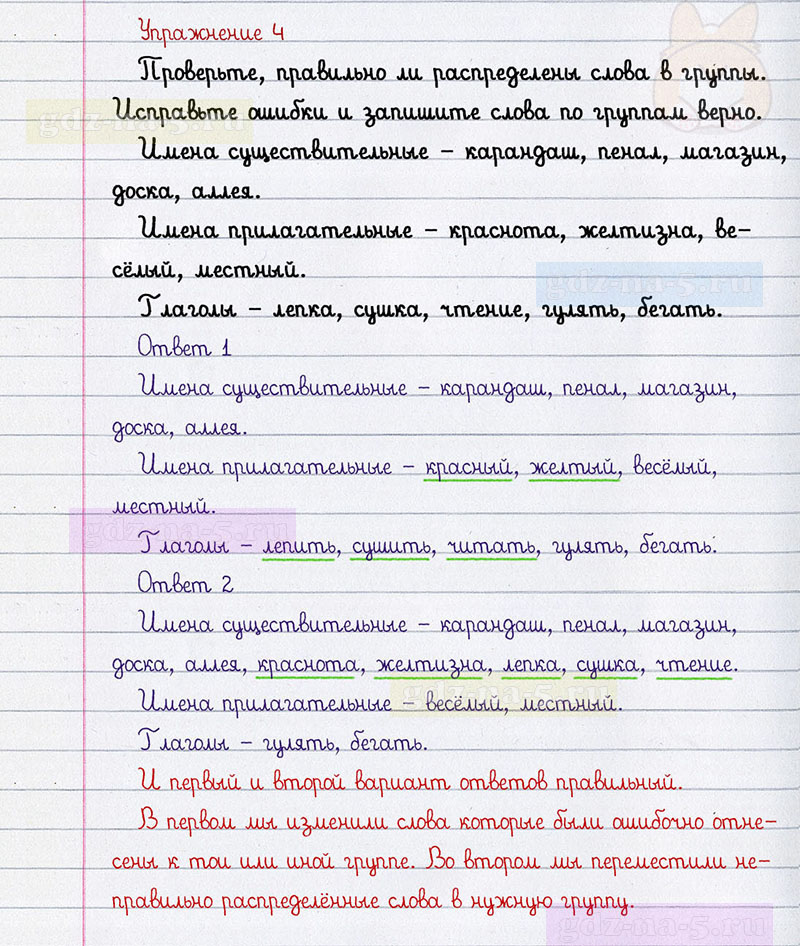 Упражнение 4
Проверьте, правильно ли распределены слова в группы.
Исправьте ошибки и запишите слова по группам верно.
gdz-na-5.ru
Имена существительные – карандаш, пенал, магазин,
доска, аллея.
Имена прилагательные – краснота, желтизна, ве-
сёлый, местный.
gdz-na-5.ru
Глаголы – лепка, сушка, чтение, гулять, бегать.
Ответ 1
Имена существительные – карандаш, пенал, магазин,
доска, аллея.
Имена прилагательные – красный, желтый, весёлый,
местный.
gdz-na-5.ru
Глаголы – лепить, сушить, читать, гулять, бегать.
Ответ 2
Имена существительные – карандаш, пенал, магазин,
доска, аллея, краснота, желтизна, лепка, сушка, чтение.
gdz-na-5.ru
Имена прилагательные – весёлый, местный.
Глаголы – гулять, бегать.
И первый и второй вариант ответов правильный.
В первом мы изменили слова которые были ошибочно отне-
сены к тои или иной группе. Во втором мы переместили не-
правильно распределённые слова в нужную группу.
gdz-na-5.ru